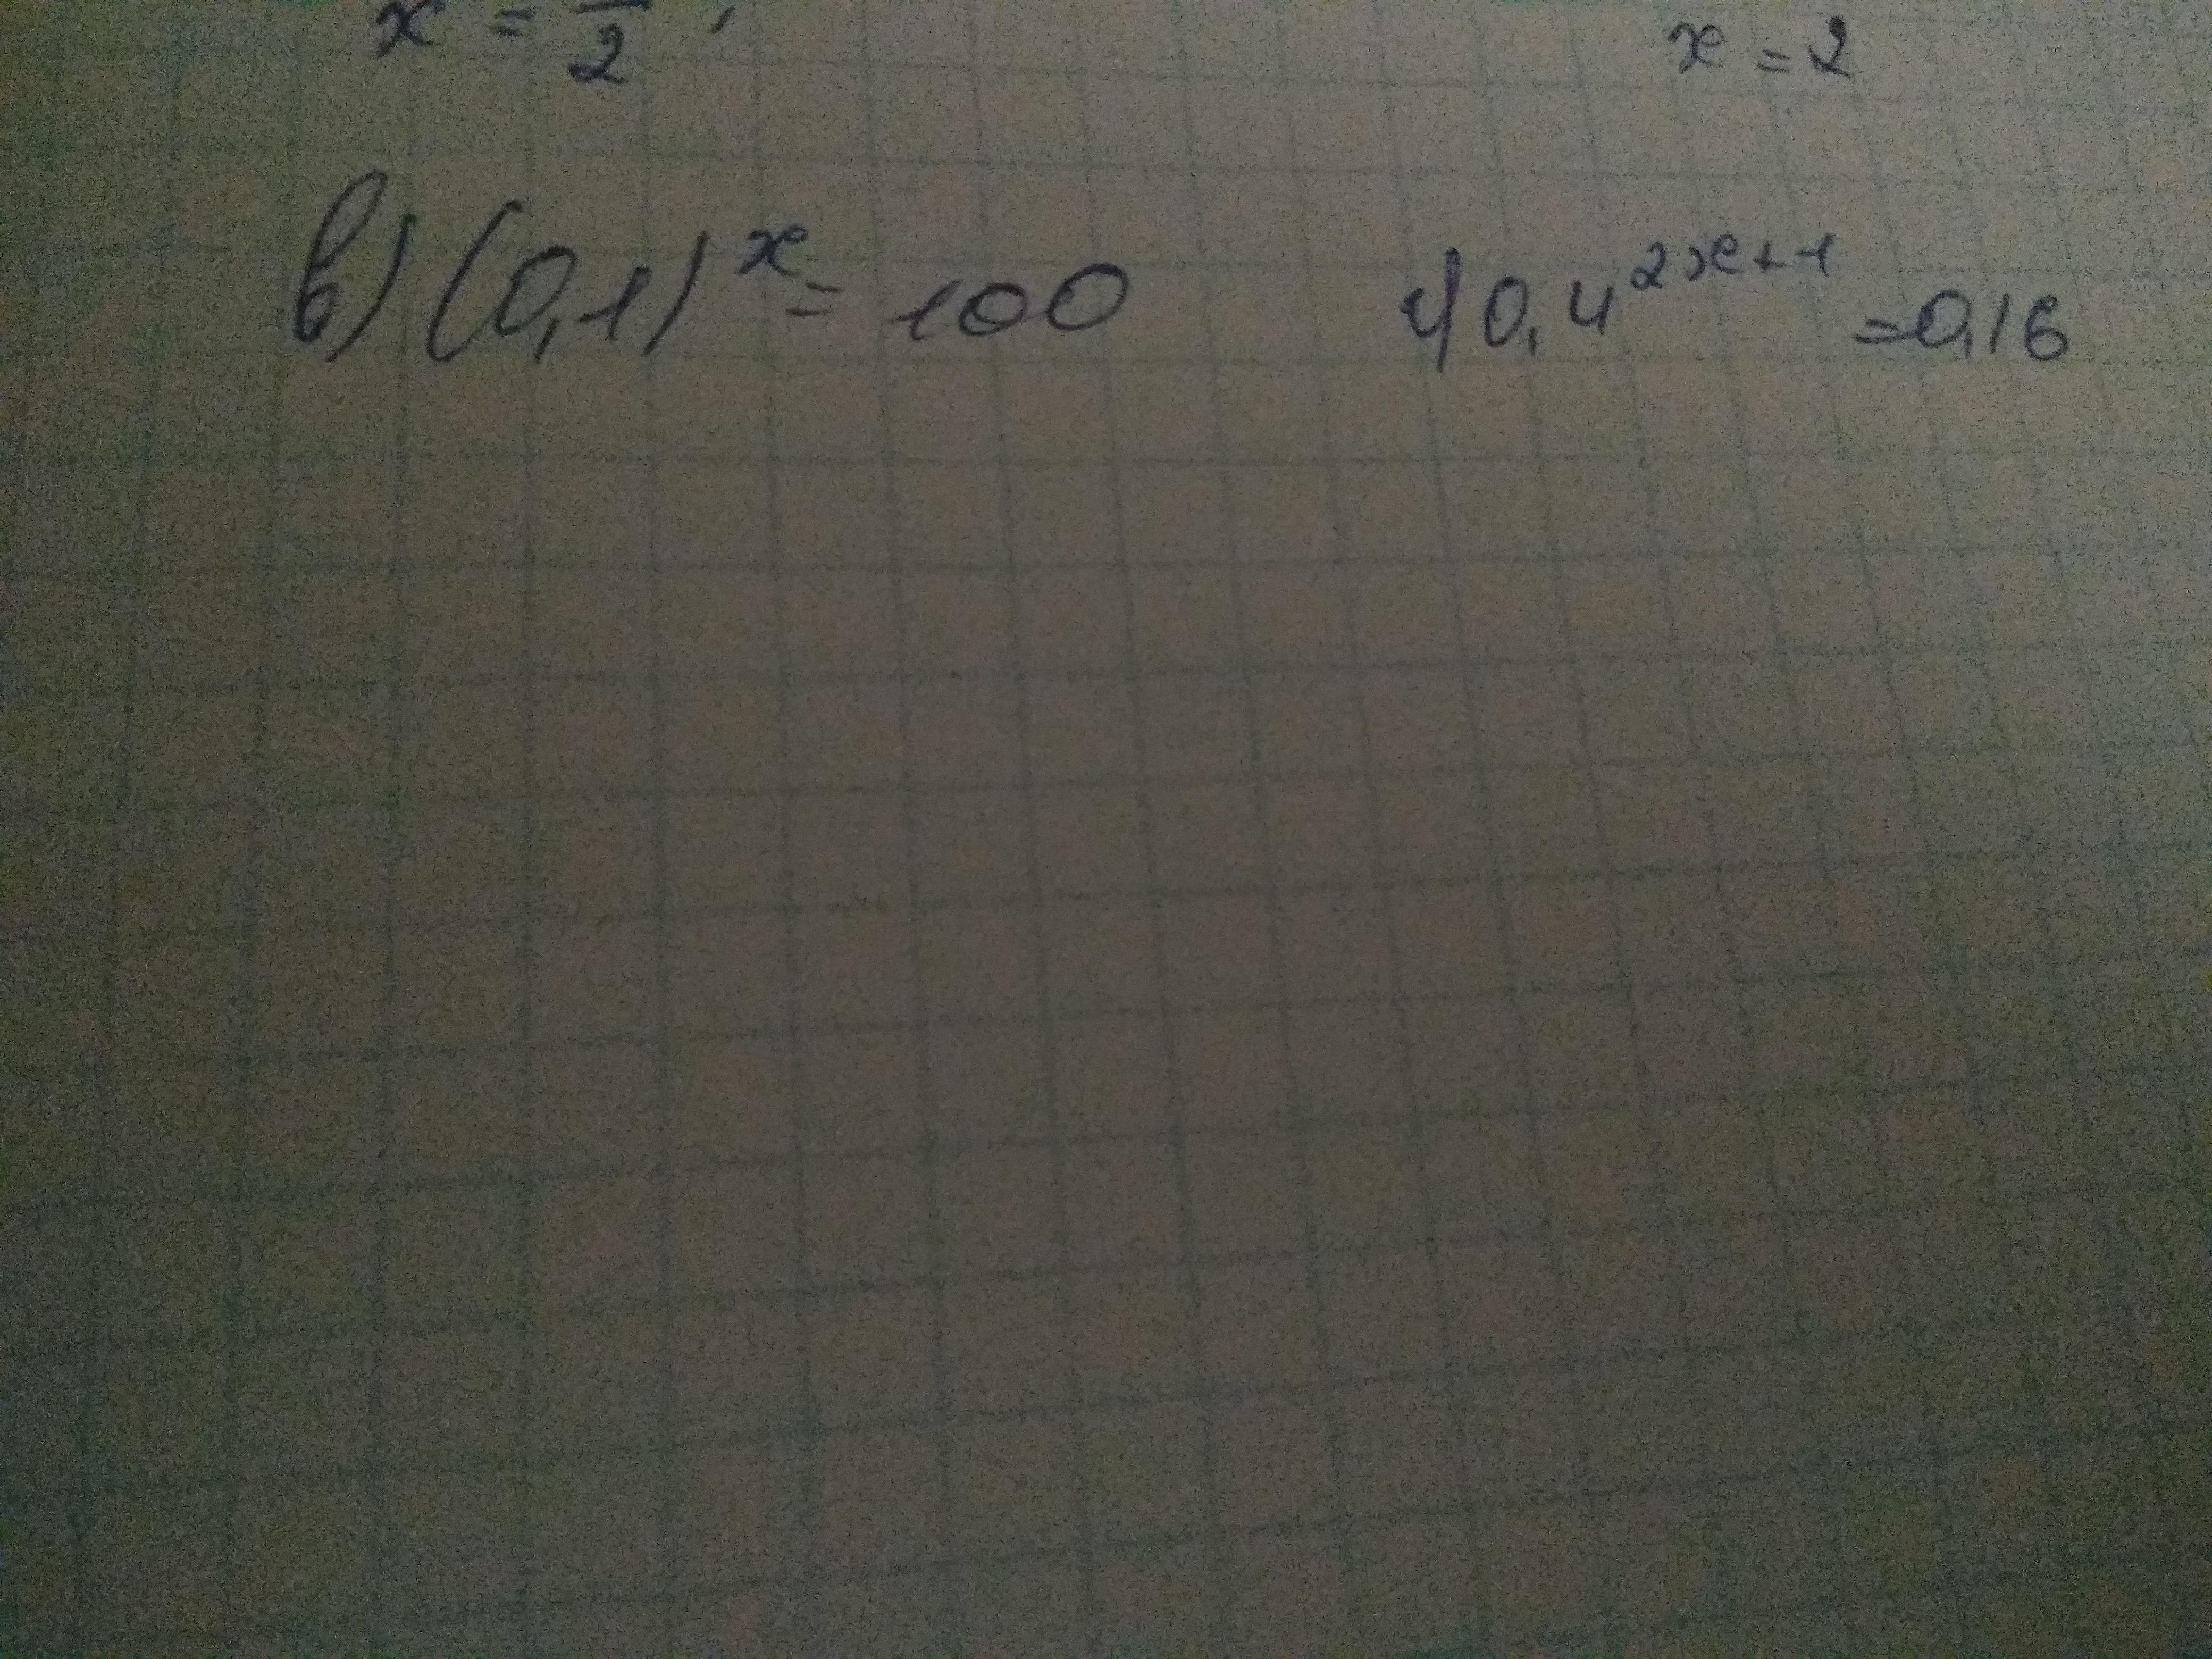 x = /2 ,
x = 2
в) (0,1)^x = 100
г) 0,4^2x+1 = 0,16